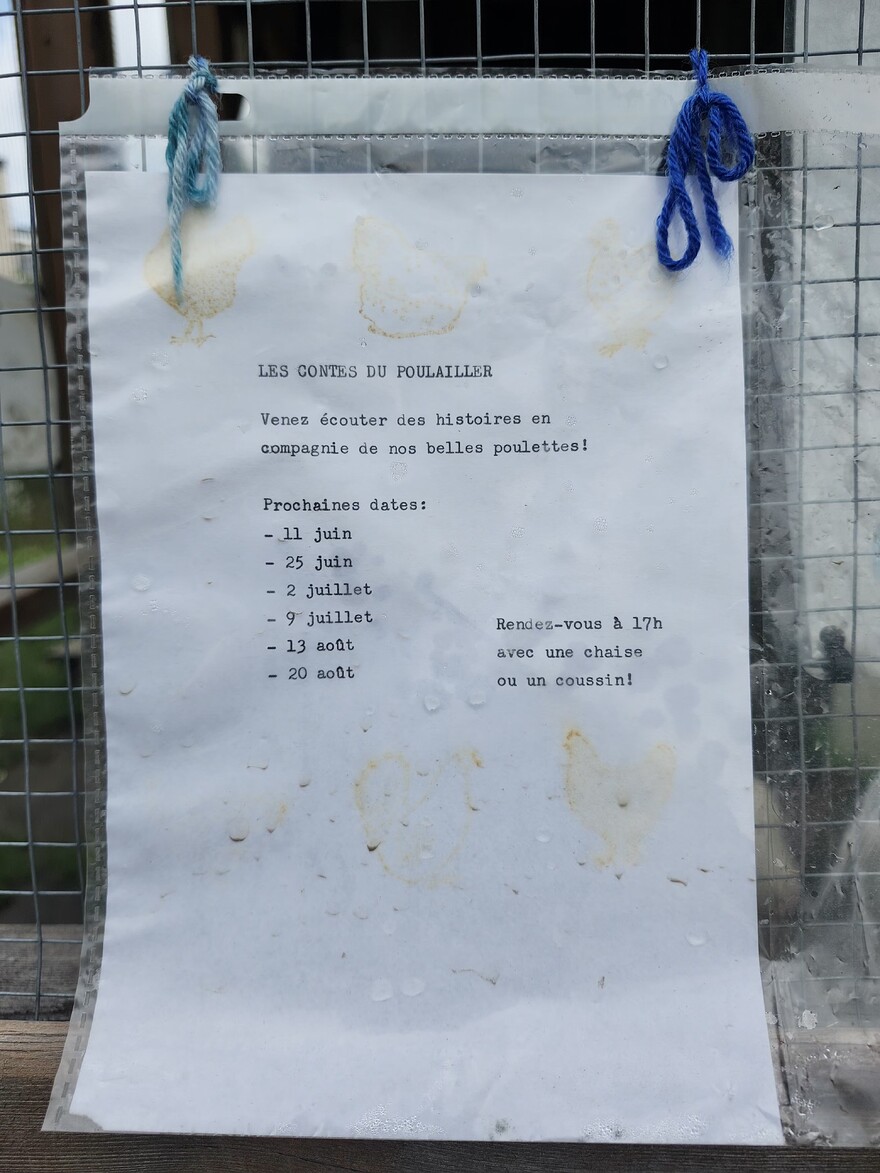 LES CONTES DU POULAILLER
Venez écouter des histoires en
compagnie de nos belles poulettes!
Prochaines dates:
- 11 juin
- 25 juin
- 2 juillet
- 9 juillet
- 13 août
- 20 août
Rendez-vous à 17h
avec une chaise
ou un coussin!